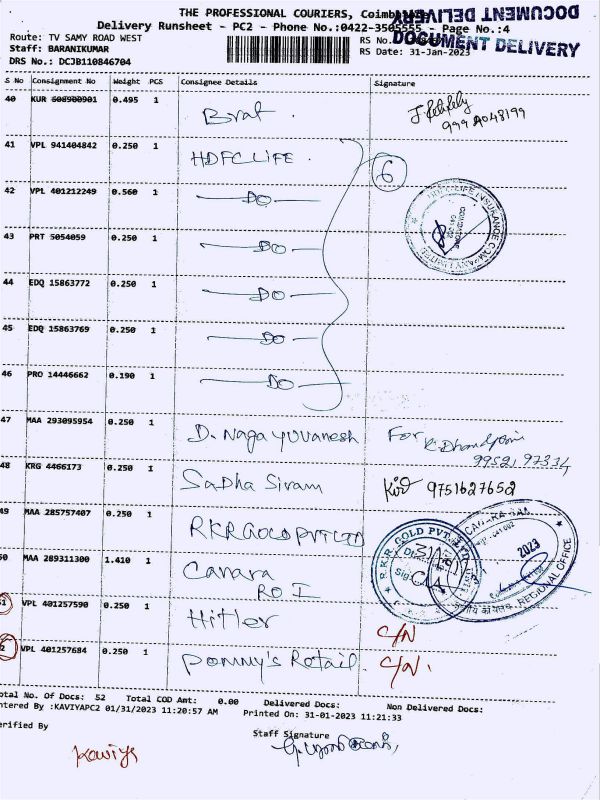 THE PROFESSIONAL COURIERS, Coimbatore
Delivery Runsheet - PC2 - Phone No.:0422-3505555 - Page No.:4
DOCUMENT DELIVERY
Route: TV SAMY ROAD WEST
RS No.
DOCUMENT DELIVERY
Staff: BARANIKUMAR
RS Date: 31-Jan-2023
DRS No.: DCJB110846704
S No Consignment No Weight PCS Consignee Details Signature
40 KUR 608900901 0.495 1 Brat. 999
41 VPL 941404842 0.250 1 HDFC LIFE. 6
HDFC LIFE INSURANCE COMPANY LIMITED
42 VPL 401212249 0.560 1 DO
43 PRT 5054059 0.250 1 DO
44 EDQ 15863772 0.250 1 DO
45 EDQ 15863769 0.250 1 DO
46 PRO 14446662 0.190 1 DO
47 MAA 293095954 0.250 1 D. Naga yuvanesh For
48 KRG 4466173 0.250 1 Sadha Sivam 9751627652
49 MAA 285757407 0.250 1 RKR GOLD PVT LTD
R.K.R. GOLD PVT. LTD.
50 MAA 289311300 1.410 1 Canara
RO I
2023
REGIONAL OFFICE
51 VPL 401257590 0.250 1 Hitler C/N
52 VPL 401257684 0.250 1 Pommy's Retail. C/N.
Total No. Of Docs: 52 Total COD Amt: 0.00 Delivered Docs: Non Delivered Docs:
Entered By :KAVIYAPC2 01/31/2023 11:20:57 AM Printed On: 31-01-2023 11:21:33
Verified By
Staff Signature
Kaviya